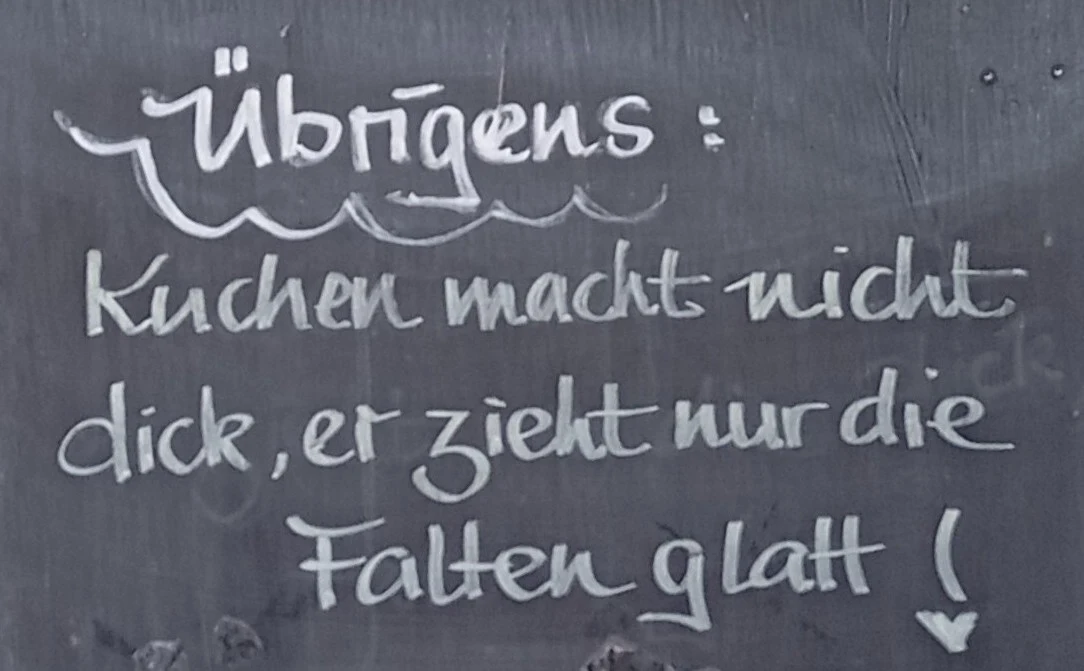 Übrigens:
Kuchen macht nicht
dick, er zieht nur die
Falten glatt!